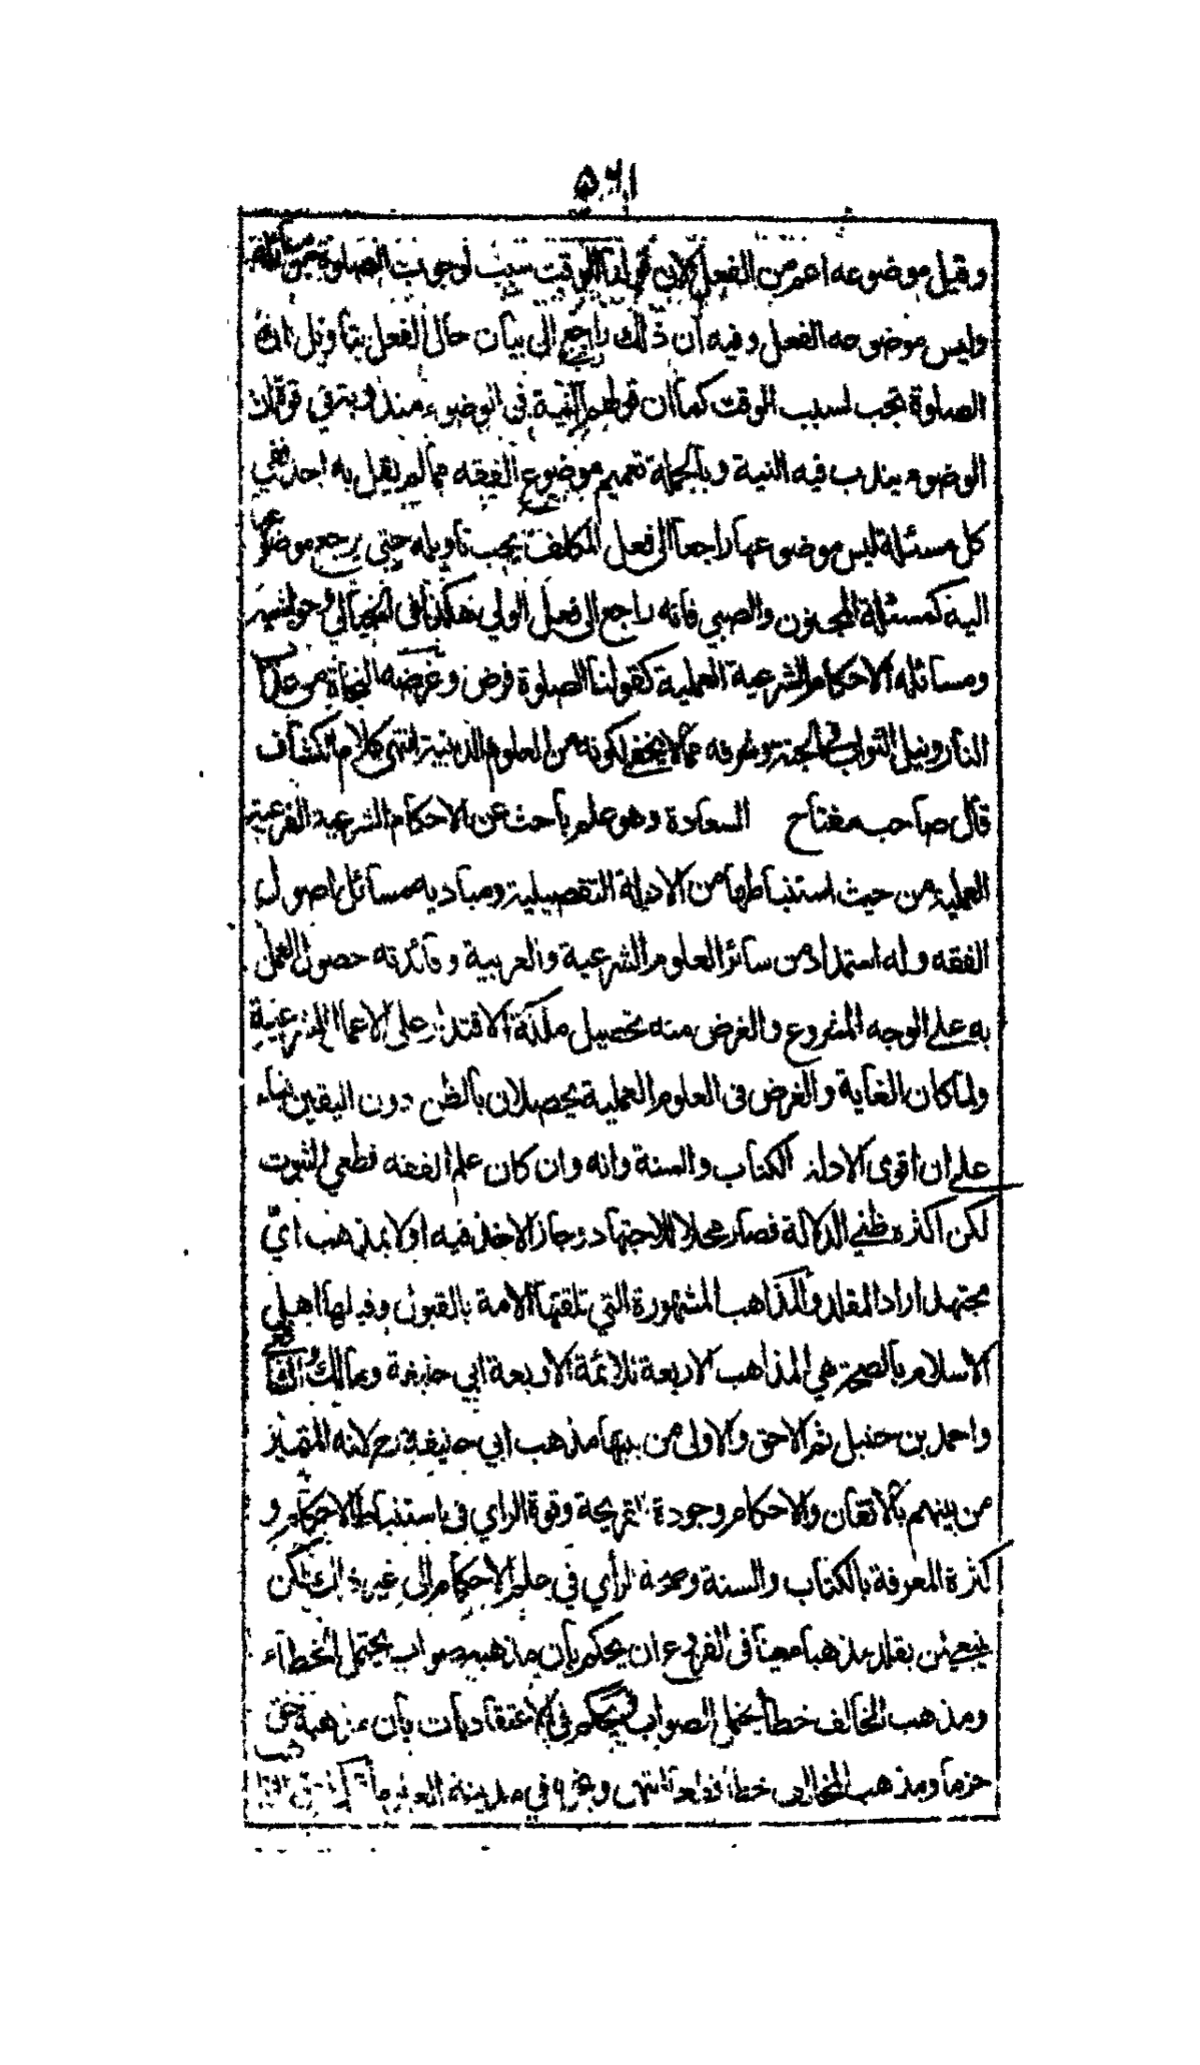 ٥٦١
وقيل موضوعه اعم من الفعل لان قولنا الوقت سبب لوجوب الصلوة من مسائله
وليس موضوعه الفعل وفيه ان ذلك راجع الى بيان حال الفعل بتاويل ان
الصلوة تجب لسبب الوقت كما ان قولهم النية في الوضوء مندوبة في قوة ان
الوضوء يندب فيه النية وبالجملة تعميم موضوع الفقه مما لم يقل به احد ففي
كل مسئلة ليس موضوعها راجعا الى فعل المكلف يجب تاويله حتى يرجع موضوعها
اليه كمسئلة المجنون والصبي فانه راجع الى فعل الولي هكذا في الخيالي وحواشيه
ومسائله الاحكام الشرعية العملية كقولنا الصلوة فرض وغرضه النجاة من عذاب
النار ونيل الثواب في الجنة وشرفه مما لا يخفى لكونه من العلوم الدينية انتهى كلام الكشاف
قال صاحب مفتاح السعادة وهو علم باحث عن الاحكام الشرعية الفرعية
العملية من حيث استنباطها من الادلة التفصيلية ومباديه مسائل اصول
الفقه وله استمداد من سائر العلوم الشرعية والعربية وفائدته حصول العمل
به على الوجه المشروع والغرض منه تحصيل ملكة الاقتدار على الاعمال الشرعية
ولما كان الغاية والغرض فى العلوم العملية يحصلان بالظن دون اليقين بناء
على ان اقوى الادلة الكتاب والسنة وانه وان كان علم الفقه قطعي الثبوت
لكن اكثره ظني الدلالة فصار محلا للاجتهاد وجاز الاخذ فيه اولا بمذهب ايّ
مجتهد اراد المقلد والمذاهب المشهورة التي تلقتها الامة بالقبول وقبلها اهل
الاسلام بالصحة هي المذاهب الاربعة للائمة الاربعة ابي حنيفة ومالك والشافعي
واحمد بن حنبل ثم الاحق والاولى من بينها مذهب ابي حنيفة رح لانه المتميز
من بينهم بالاتقان والاحكام وجودة القريحة وقوة الراي فى استنباط الاحكام و
كثرة المعرفة بالكتاب والسنة وصحة الرأي في علم الاحكام الى غير ذلك لكن
ينبغي لمن يقلد مذهبا معينا فى الفروع ان يحكم بان مذهبه صواب يحتمل الخطاء
ومذهب المخالف خطأ يحتمل الصواب ويحكم في الاعتقاديات بان مذهبه حق
جزما ومذهب المخالف خطأ قطعا انتهى وفي مدينة العلوم